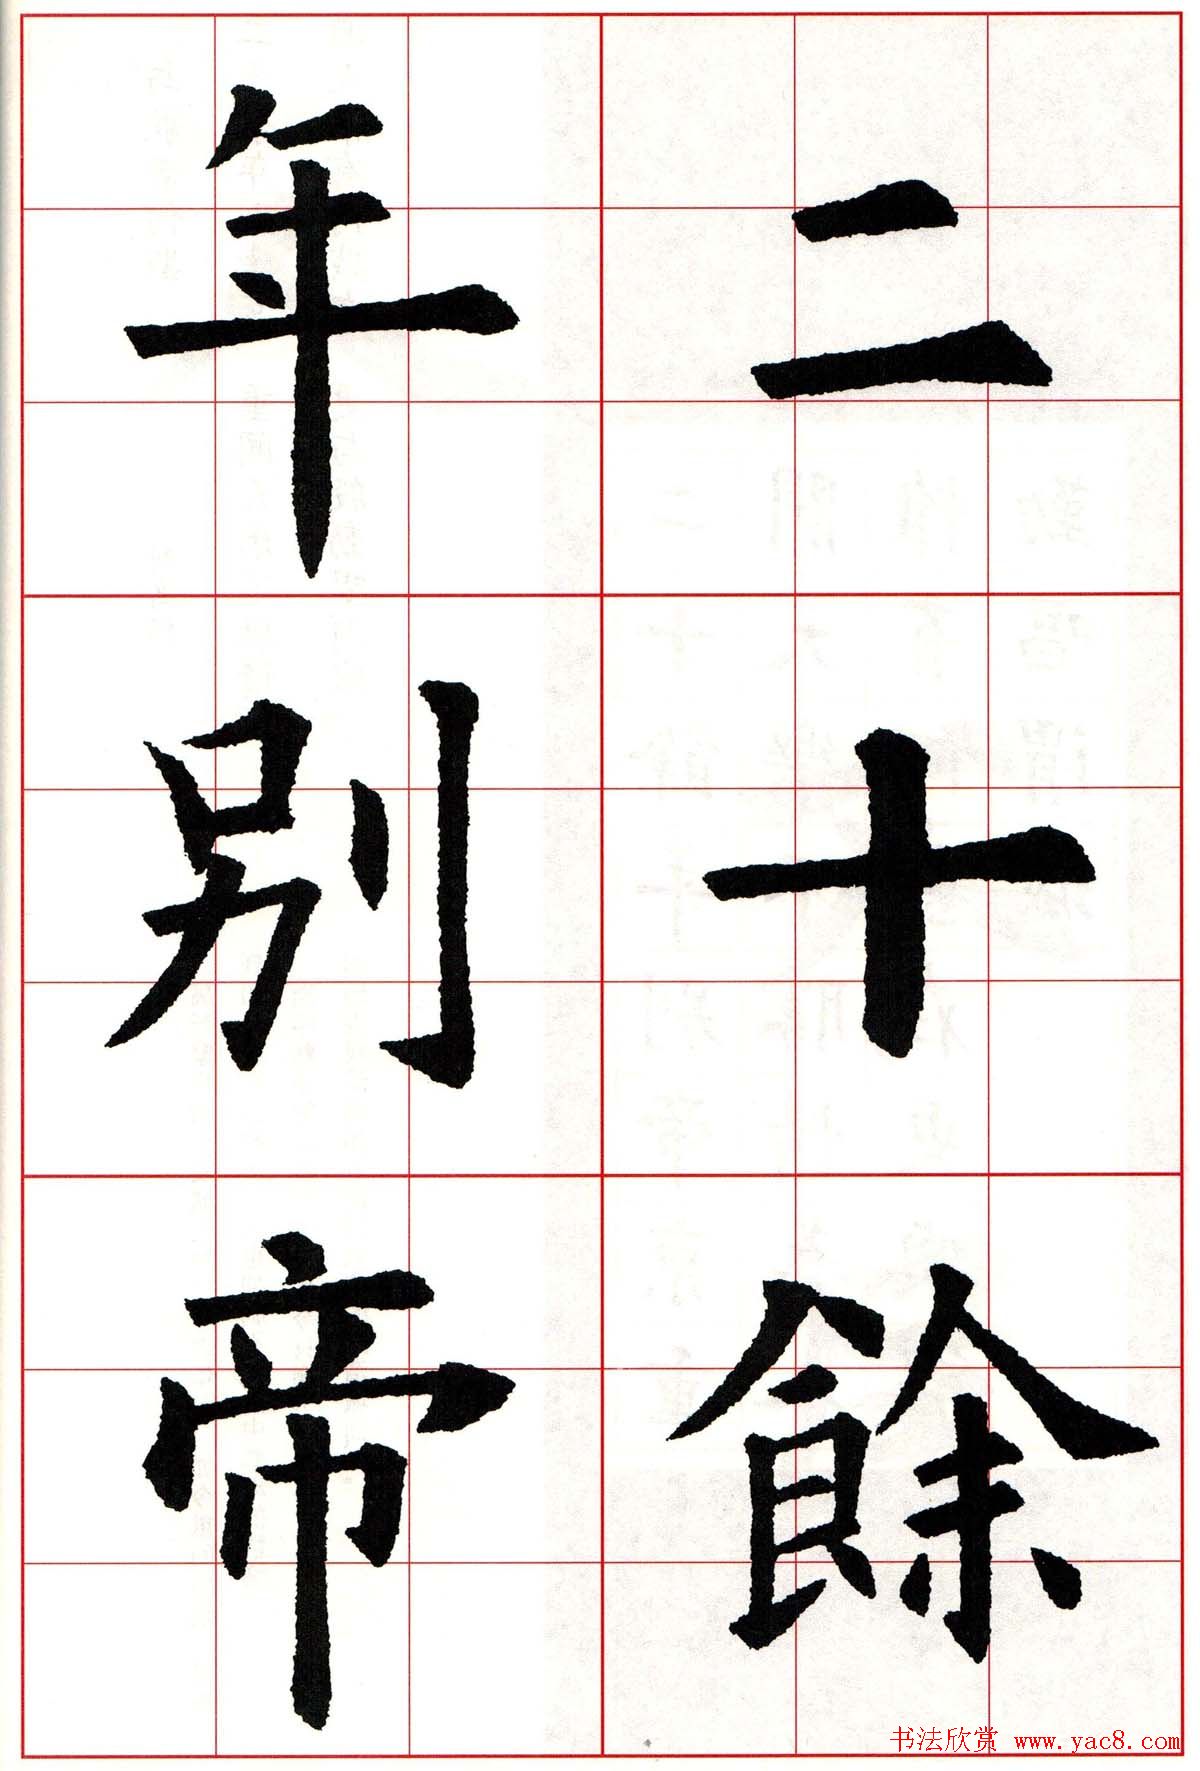 二十餘
年别帝
书法欣赏 www.yac8.com